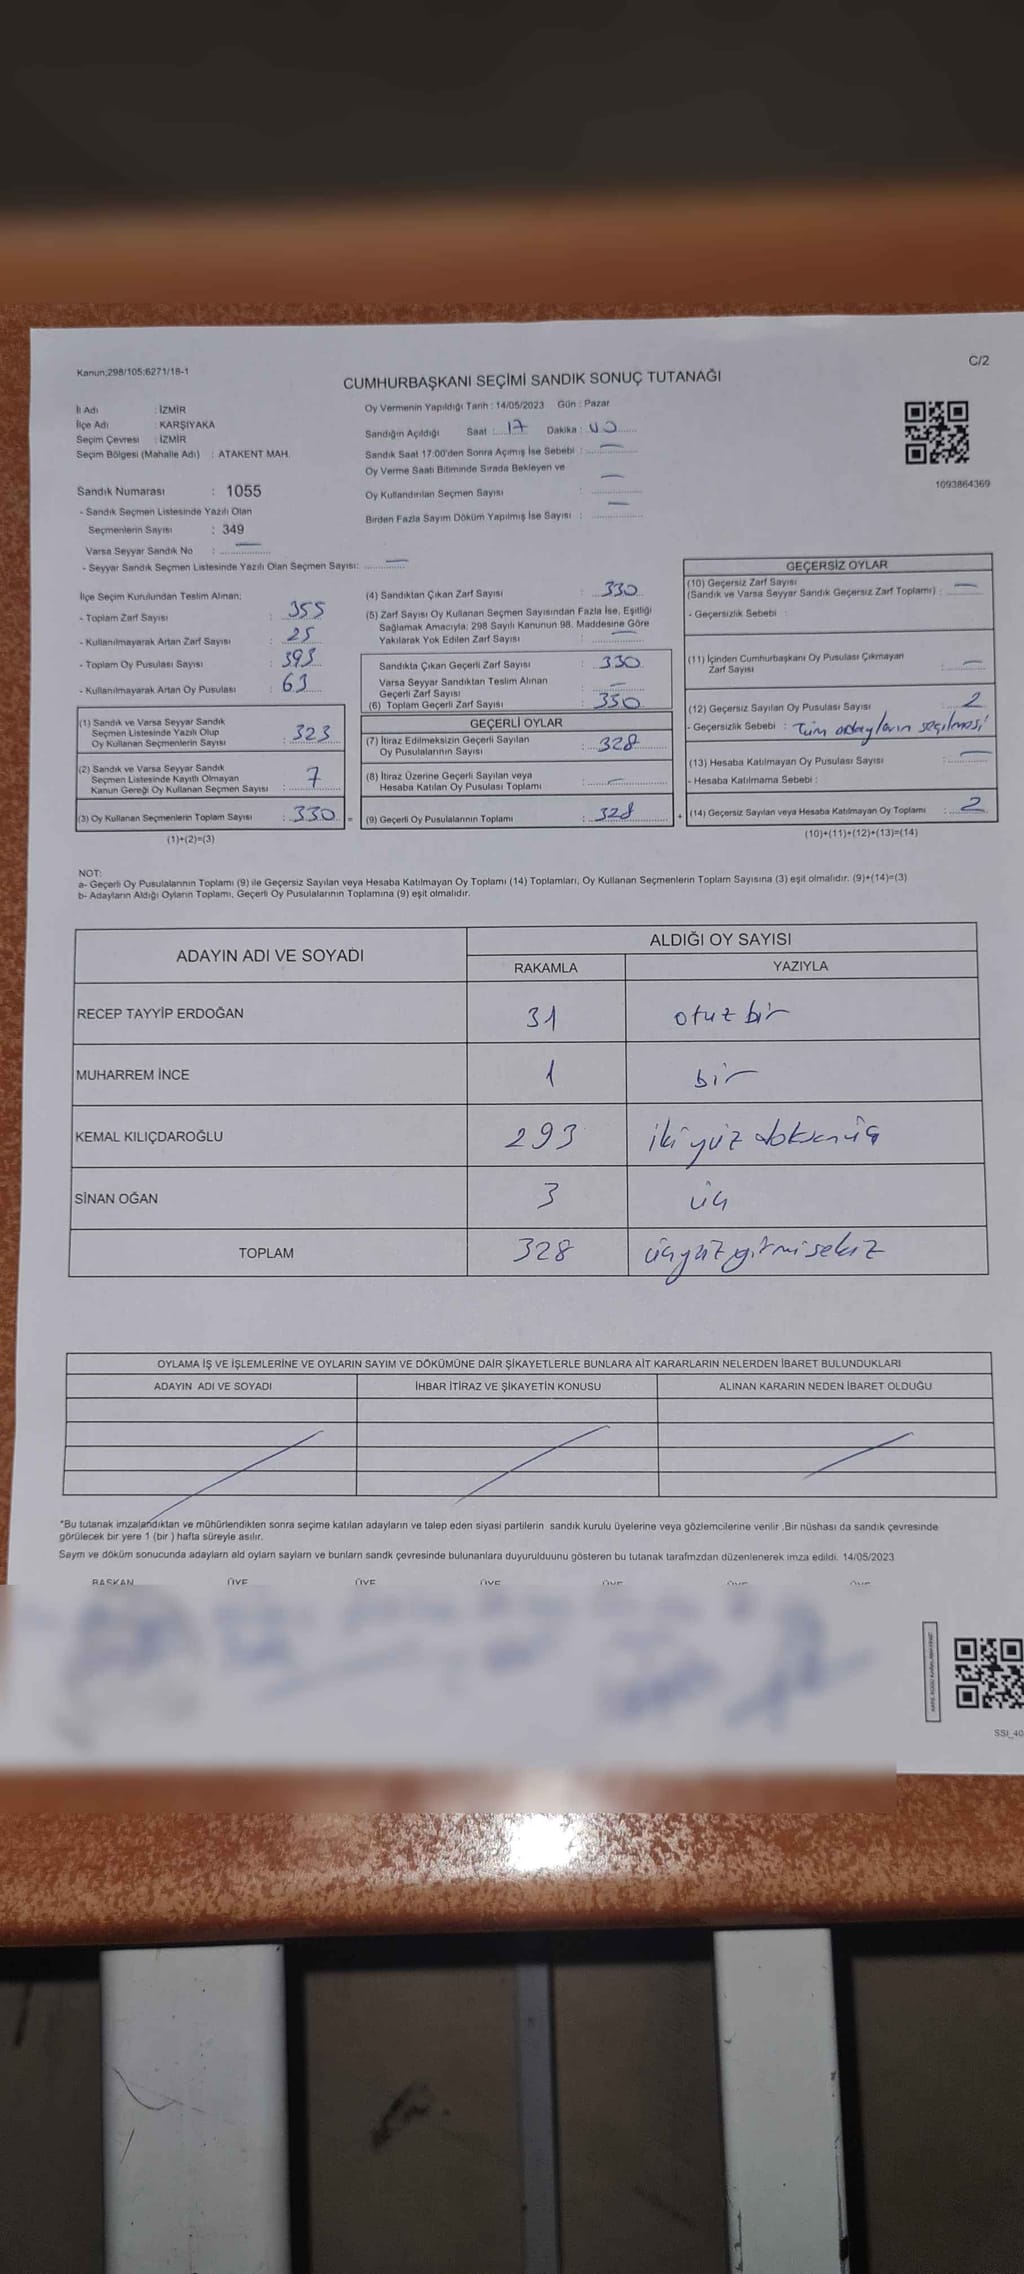 Kanun;298/105;6271/18-1
C/2
CUMHURBAŞKANI SEÇİMİ SANDIK SONUÇ TUTANAĞI
İl Adı : İZMİR
İlçe Adı : KARŞIYAKA
Seçim Çevresi : İZMİR
Seçim Bölgesi (Mahalle Adı) : ATAKENT MAH.
Sandık Numarası : 1055
- Sandık Seçmen Listesinde Yazılı Olan
Seçmenlerin Sayısı : 349
Varsa Seyyar Sandık No :
- Seyyar Sandık Seçmen Listesinde Yazılı Olan Seçmen Sayısı:
Oy Vermenin Yapıldığı Tarih : 14/05/2023 Gün : Pazar
Sandığın Açıldığı Saat : 17 Dakika :
Sandık Saat 17:00'den Sonra Açımış İse Sebebi :
Oy Verme Saati Bitiminde Sırada Bekleyen ve
Oy Kullandırılan Seçmen Sayısı :
Birden Fazla Sayım Döküm Yapılmış İse Sayısı :
1093864369
İlçe Seçim Kurulundan Teslim Alınan:
- Toplam Zarf Sayısı : 355
- Kullanılmayarak Artan Zarf Sayısı : 25
- Toplam Oy Pusulası Sayısı : 393
- Kullanılmayarak Artan Oy Pusulası : 63
(1) Sandık ve Varsa Seyyar Sandık
Seçmen Listesinde Yazılı Olup
Oy Kullanan Seçmenlerin Sayısı : 323
(2) Sandık ve Varsa Seyyar Sandık
Seçmen Listesinde Kayıtlı Olmayan
Kanun Gereği Oy Kullanan Seçmen Sayısı : 7
(3) Oy Kullanan Seçmenlerin Toplam Sayısı : 330 =
(1)+(2)=(3)
(4) Sandıktan Çıkan Zarf Sayısı : 330
(5) Zarf Sayısı Oy Kullanan Seçmen Sayısından Fazla İse, Eşitliği
Sağlamak Amacıyla; 298 Sayılı Kanunun 98. Maddesine Göre
Yakılarak Yok Edilen Zarf Sayısı :
Sandıkta Çıkan Geçerli Zarf Sayısı : 330
Varsa Seyyar Sandıktan Teslim Alınan
Geçerli Zarf Sayısı :
(6) Toplam Geçerli Zarf Sayısı : 330
GEÇERLİ OYLAR
(7) İtiraz Edilmeksizin Geçerli Sayılan
Oy Pusulalarının Sayısı : 328
(8) İtiraz Üzerine Geçerli Sayılan veya
Hesaba Katılan Oy Pusulası Toplamı :
(9) Geçerli Oy Pusulalarının Toplamı : 328 +
GEÇERSİZ OYLAR
(10) Geçersiz Zarf Sayısı
(Sandık ve Varsa Seyyar Sandık Geçersiz Zarf Toplamı) :
- Geçersizlik Sebebi :
(11) İçinden Cumhurbaşkanı Oy Pusulası Çıkmayan
Zarf Sayısı :
(12) Geçersiz Sayılan Oy Pusulası Sayısı : 2
- Geçersizlik Sebebi : Tüm adayların seçilmesi
(13) Hesaba Katılmayan Oy Pusulası Sayısı :
- Hesaba Katılmama Sebebi :
(14) Geçersiz Sayılan veya Hesaba Katılmayan Oy Toplamı : 2
(10)+(11)+(12)+(13)=(14)
NOT:
a- Geçerli Oy Pusulalarının Toplamı (9) ile Geçersiz Sayılan veya Hesaba Katılmayan Oy Toplamı (14) Toplamları, Oy Kullanan Seçmenlerin Toplam Sayısına (3) eşit olmalıdır. (9)+(14)=(3)
b- Adayların Aldığı Oyların Toplamı, Geçerli Oy Pusulalarının Toplamına (9) eşit olmalıdır.
ADAYIN ADI VE SOYADI
ALDIĞI OY SAYISI
RAKAMLA YAZIYLA
RECEP TAYYİP ERDOĞAN 31 otuz bir
MUHARREM İNCE 1 bir
KEMAL KILIÇDAROĞLU 293 iki yüz doksan üç
SİNAN OĞAN 3 üç
TOPLAM 328 üçyüz yirmi sekiz
OYLAMA İŞ VE İŞLEMLERİNE VE OYLARIN SAYIM VE DÖKÜMÜNE DAİR ŞİKAYETLERLE BUNLARA AİT KARARLARIN NELERDEN İBARET BULUNDUKLARI
ADAYIN ADI VE SOYADI İHBAR İTİRAZ VE ŞİKAYETİN KONUSU ALINAN KARARIN NEDEN İBARET OLDUĞU
*Bu tutanak imzalandıktan ve mühürlendikten sonra seçime katılan adayların ve talep eden siyasi partilerin sandık kurulu üyelerine veya gözlemcilerine verilir .Bir nüshası da sandık çevresinde
görülecek bir yere 1 (bir ) hafta süreyle asılır.
Sayım ve döküm sonucunda adayların ald oylarn saylarn ve bunlarn sandk çevresinde bulunanlara duyurulduunu gösteren bu tutanak tarafmzdan düzenlenerek imza edildi. 14/05/2023
BAŞKAN ÜYE ÜYE ÜYE ÜYE ÜYE ÜYE
SSI_40